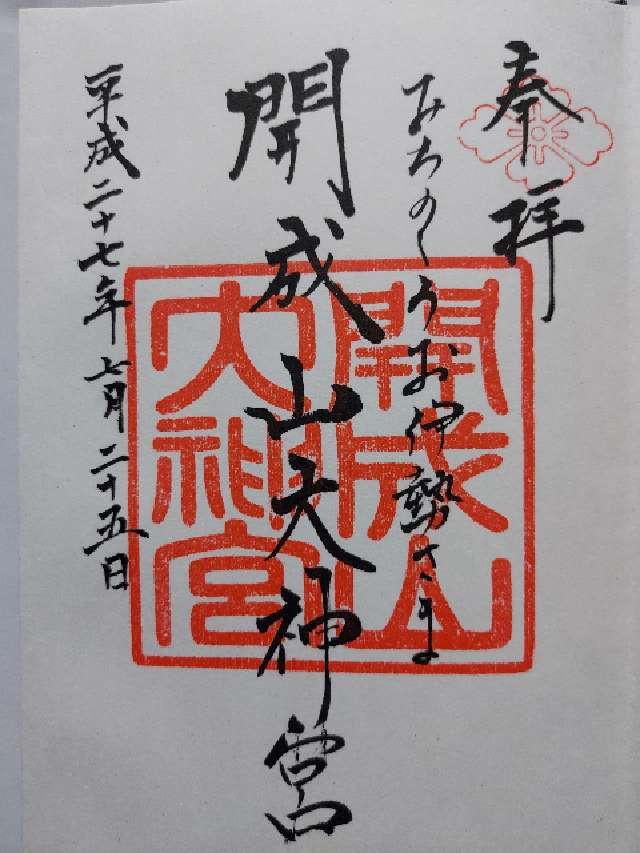 奉拝
みちのくのお伊勢さま
開成山天神宮
平成二十七年七月二十五日
開成山
大神宮